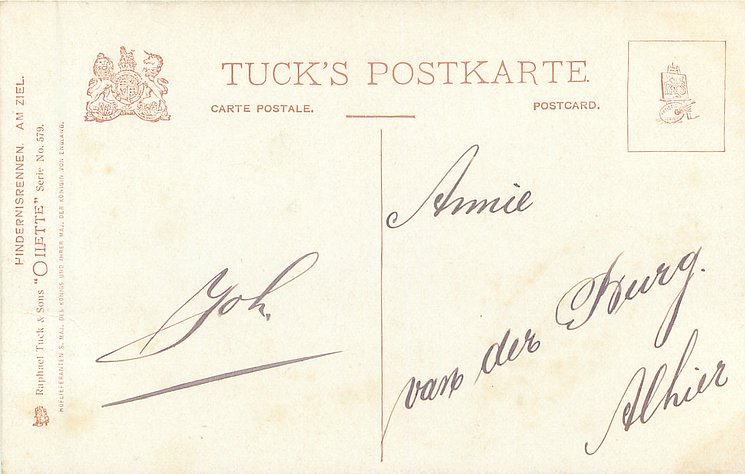 TUCK'S POSTKARTE.
CARTE POSTALE.
POSTCARD.
HINDERNISRENNEN. AM ZIEL.
Raphael Tuck & Sons "OILETTE" Serie No. 579.
HOFLIEFERANTEN S. MAJ. DES KÖNIGS UND IHRER MAJ. DER KÖNIGIN VON ENGLAND.
Joh.
Annie
van der Burg.
Alhier